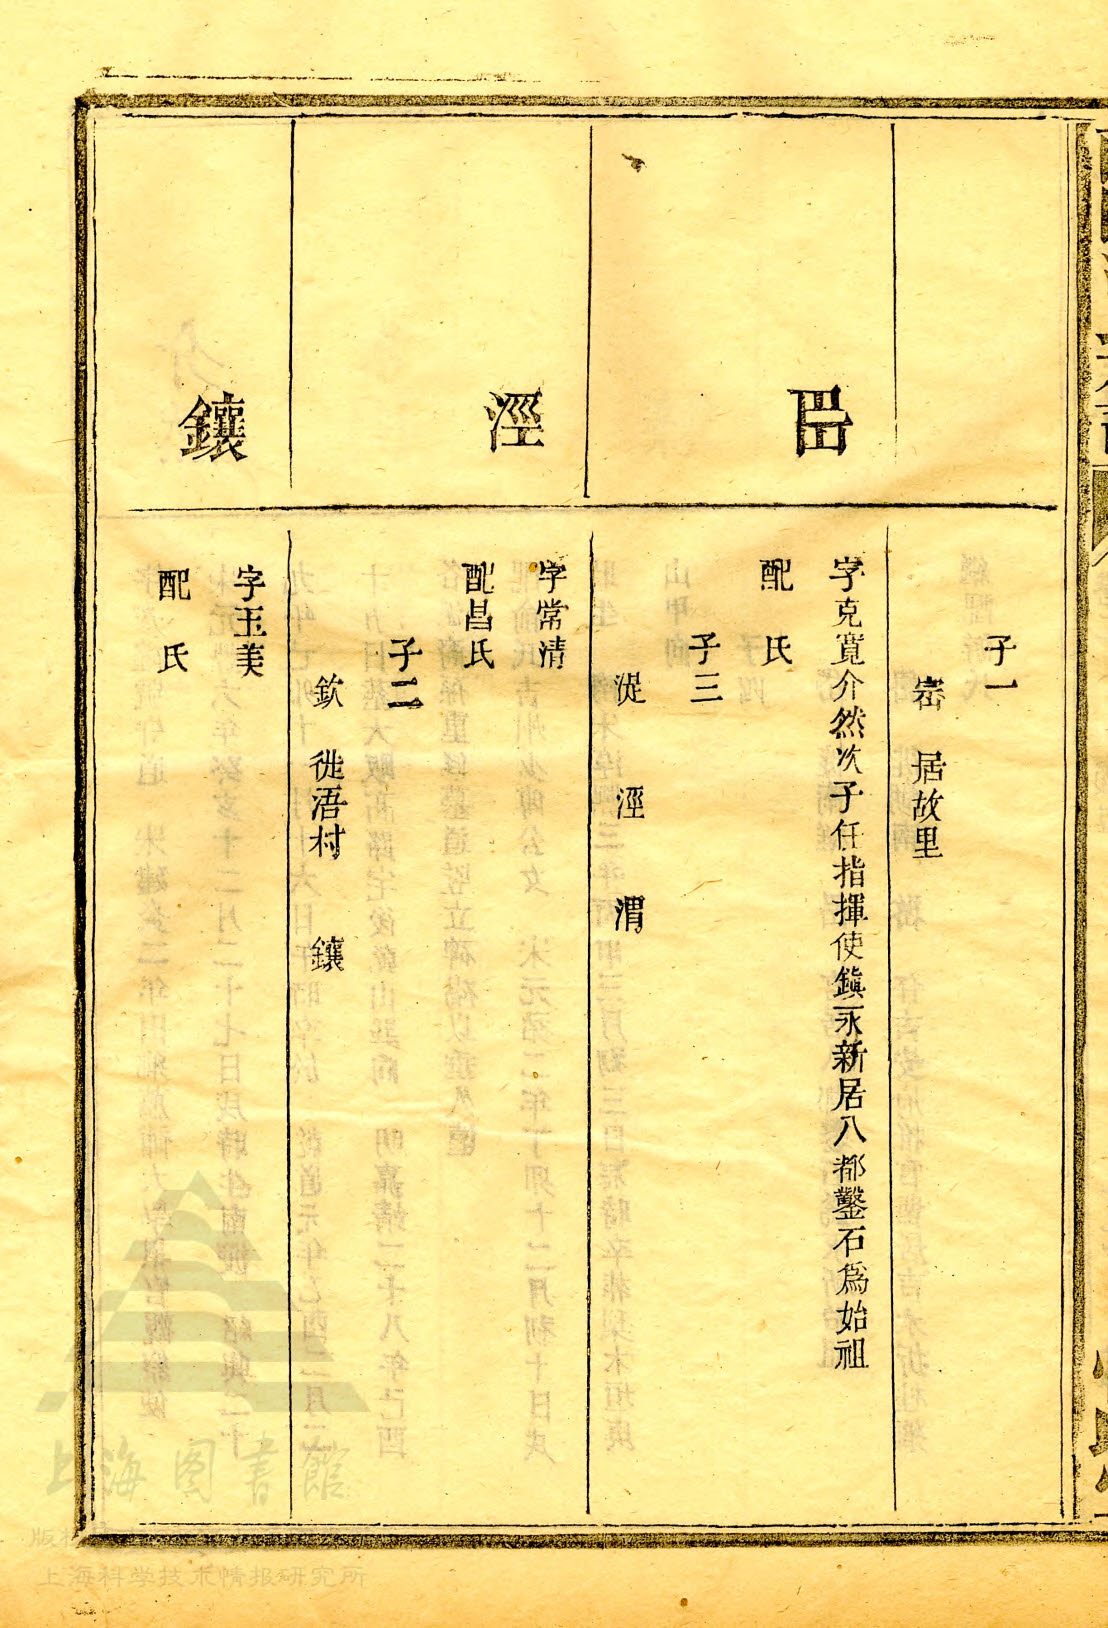 子一
崈　居故里
字克寬介然次子任指揮使鎮永新居八都鑿石爲始祖
配　氏
子三
漇　涇　渭
涇
字常清
配昌氏
子二
欽　徙浯村　鑲
鑲
字玉美
配　氏
上海图書館
上海科学技术情报研究所